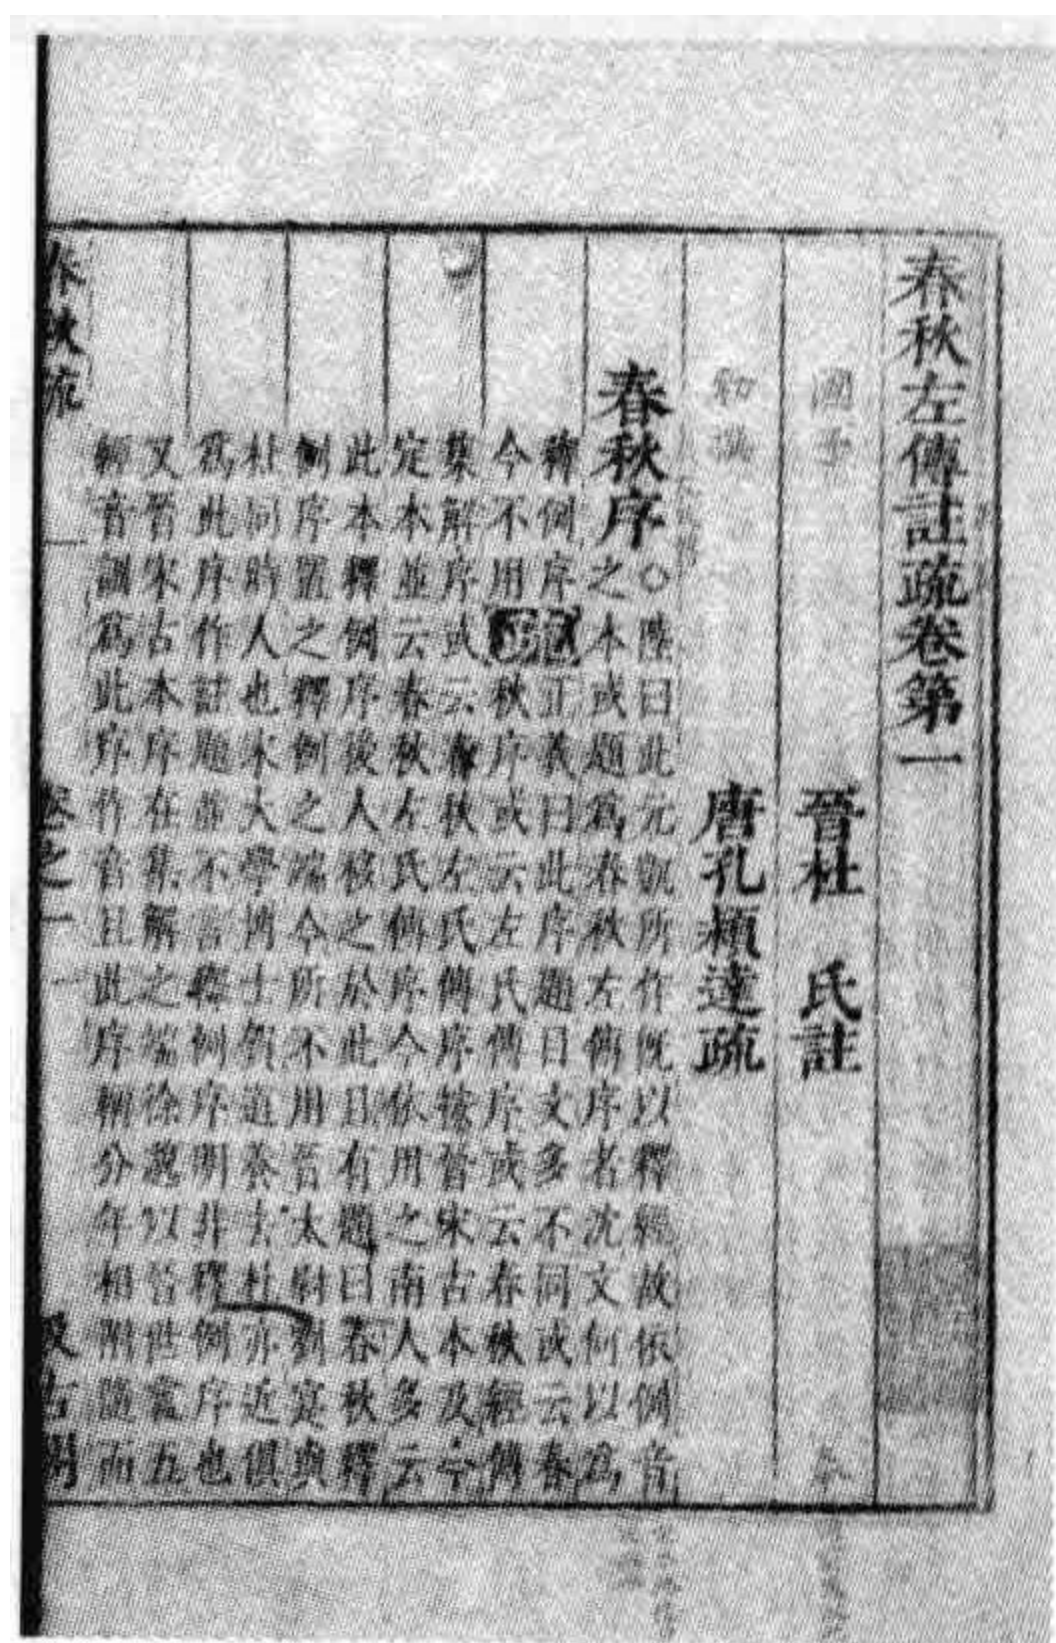 春秋左傳註疏卷第一
晉杜 氏註
唐孔穎達疏
春秋序○陸曰此元凱所作旣以釋經故依例音
之本或題爲春秋左傳序者沈文何以爲
釋例序
今不用
疏
正義曰此序題目文多不同或云春
秋序或云左氏傳序或云春秋經傳
集解序或云春秋左氏傳序按晉宋古本及今
定本並云春秋左氏傳序今依用之南人多云
此本釋例序後人移之於此且有題曰春秋釋
例序置之釋例之端今所不用晉太尉劉寔與
杜同時人也宋大學博士賀道養去杜亦近俱
爲此序作註題並不言釋例序明非釋例序也
又晉宋古本序在集解之端徐邈以晉世言五
經音訓爲此序作音且此序稱分年相附隨而
春秋疏
卷之一
一
汲古閣